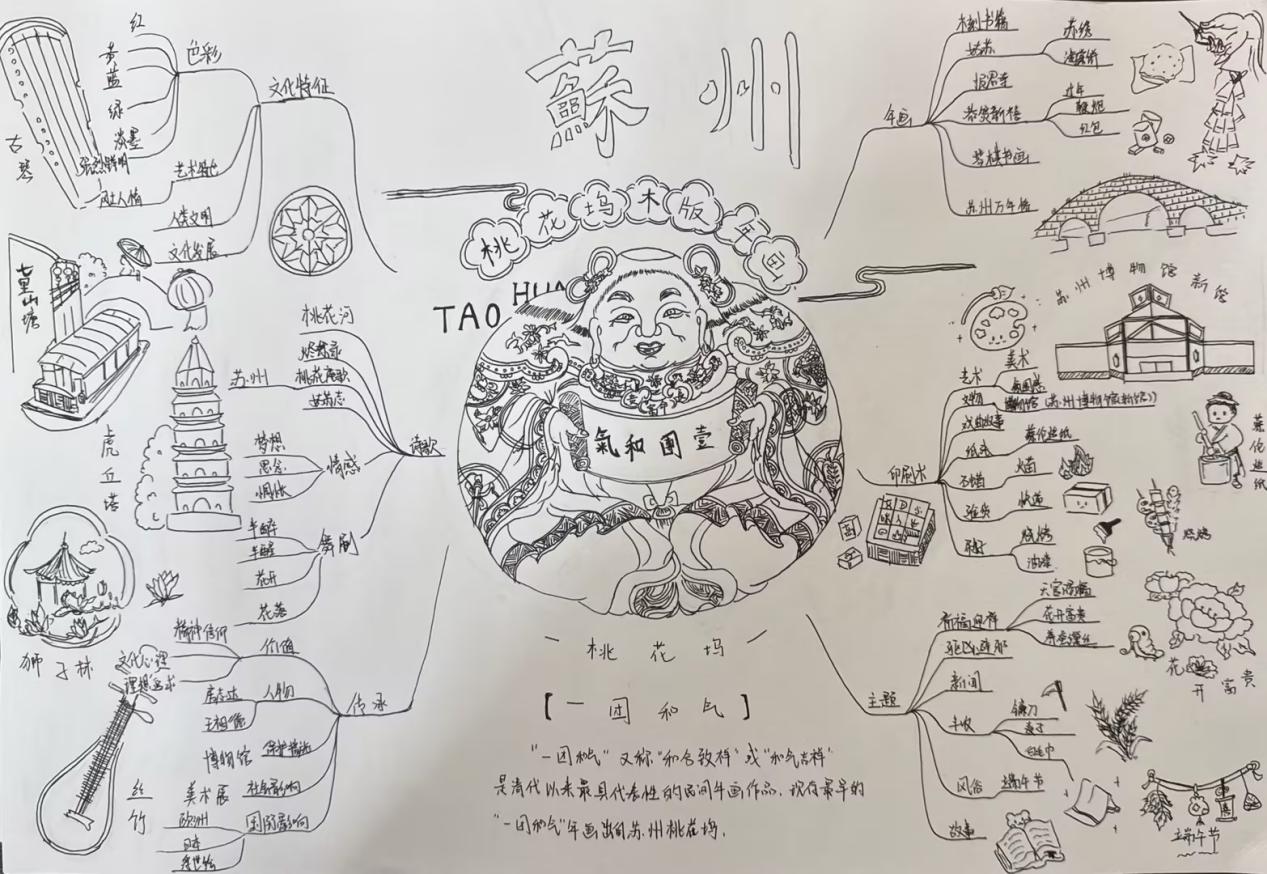 蘇州
桃花坞木版年画
TAO HUA
壹團和氣
桃花坞
【一团和气】
"一团和气"又称"和合致祥"或"和气吉祥"
是清代以来最具代表性的民间年画作品,现存最早的
"一团和气"年画出自苏州桃花坞.
文化特征
色彩
红
黄
蓝
绿
淡墨
艺术特色
风土人情
人类文明
文化发展
古琴
七里山塘
虎丘塔
狮子林
丝竹
诗歌
苏州
桃花河
桃花庵歌
姑苏志
情感
梦想
思念
惆怅
半醉
半醒
花开
花落
传承
价值
精神信仰
文化心理
理想追求
人物
房志达
王祖德
保护措施
博物馆
社会影响
美术展
国际影响
欧洲
日本
浮世绘
年画
木刻书籍
姑苏
苏绣
报恩寺
恭贺新禧
过年
鞭炮
红包
苏州万年桥
印刷术
艺术
美术
文物
博物馆(苏州博物馆(新馆))
戏曲故事
纸末
蔡伦造纸
火苗
快递
烧烤
油漆
苏州博物馆新馆
蔡伦造纸
烧烤
主题
祈福迎祥
天官赐福
花开富贵
驱凶辟邪
新闻
丰收
镰刀
麦子
风俗
端午节
故事
花开富贵
端午节